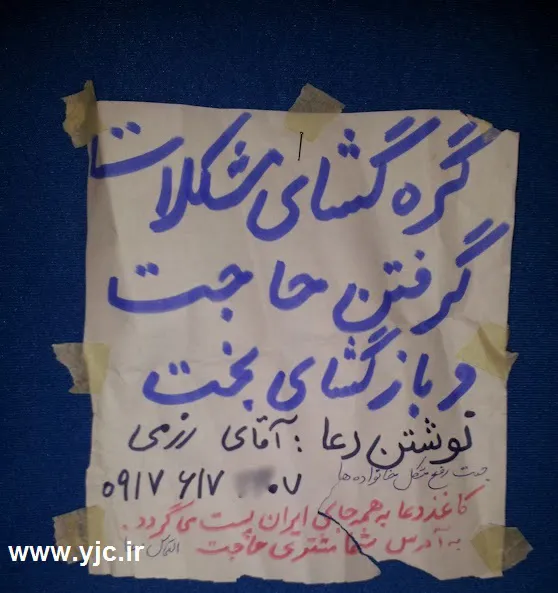 گره گشای مشکلات
گرفتن حاجت
و بازگشای بخت
نوشتن دعا : آقای رزمی
جهت رفع مشکل خانواده ها
۰۹۱۷ ۶۱۷ ۰۷
کاغذ دعا به همه جای ایران پست می گردد.
به آدرس شما مشتری حاجت
www.yjc.ir